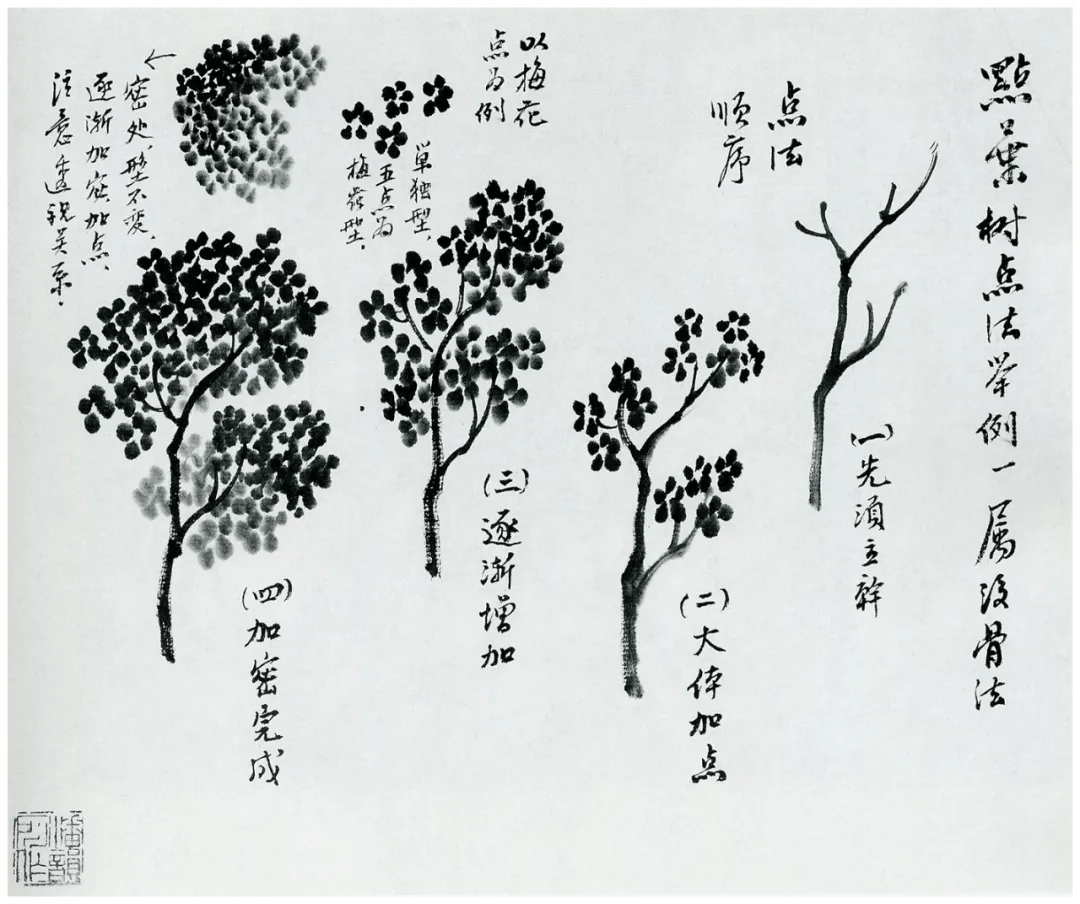 點葉树点法举例一属没骨法
点法
顺序
(一)先须立幹
(二)大体加点
以梅花
点为例
单独型、
五点为
梅花型.
(三)逐渐增加
密处,型不变、
逐渐加密加点、
注意透视关系.
(四)加密完成
潘韻